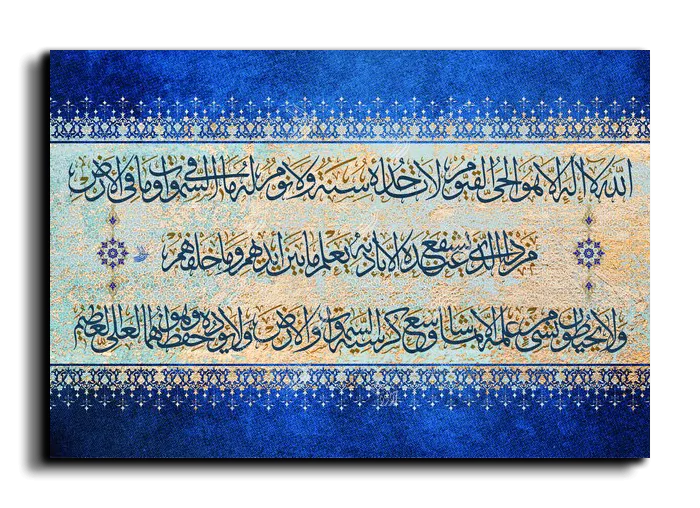 الله لا إله إلا هو الحي القيوم لا تأخذه سنة ولا نوم له ما في السموات وما في الأرض
من ذا الذي يشفع عنده إلا بإذنه يعلم ما بين أيديهم وما خلفهم
ولا يحيطون بشيء من علمه إلا بما شاء وسع كرسيه السموات والأرض ولا يؤده حفظهما وهو العلي العظيم